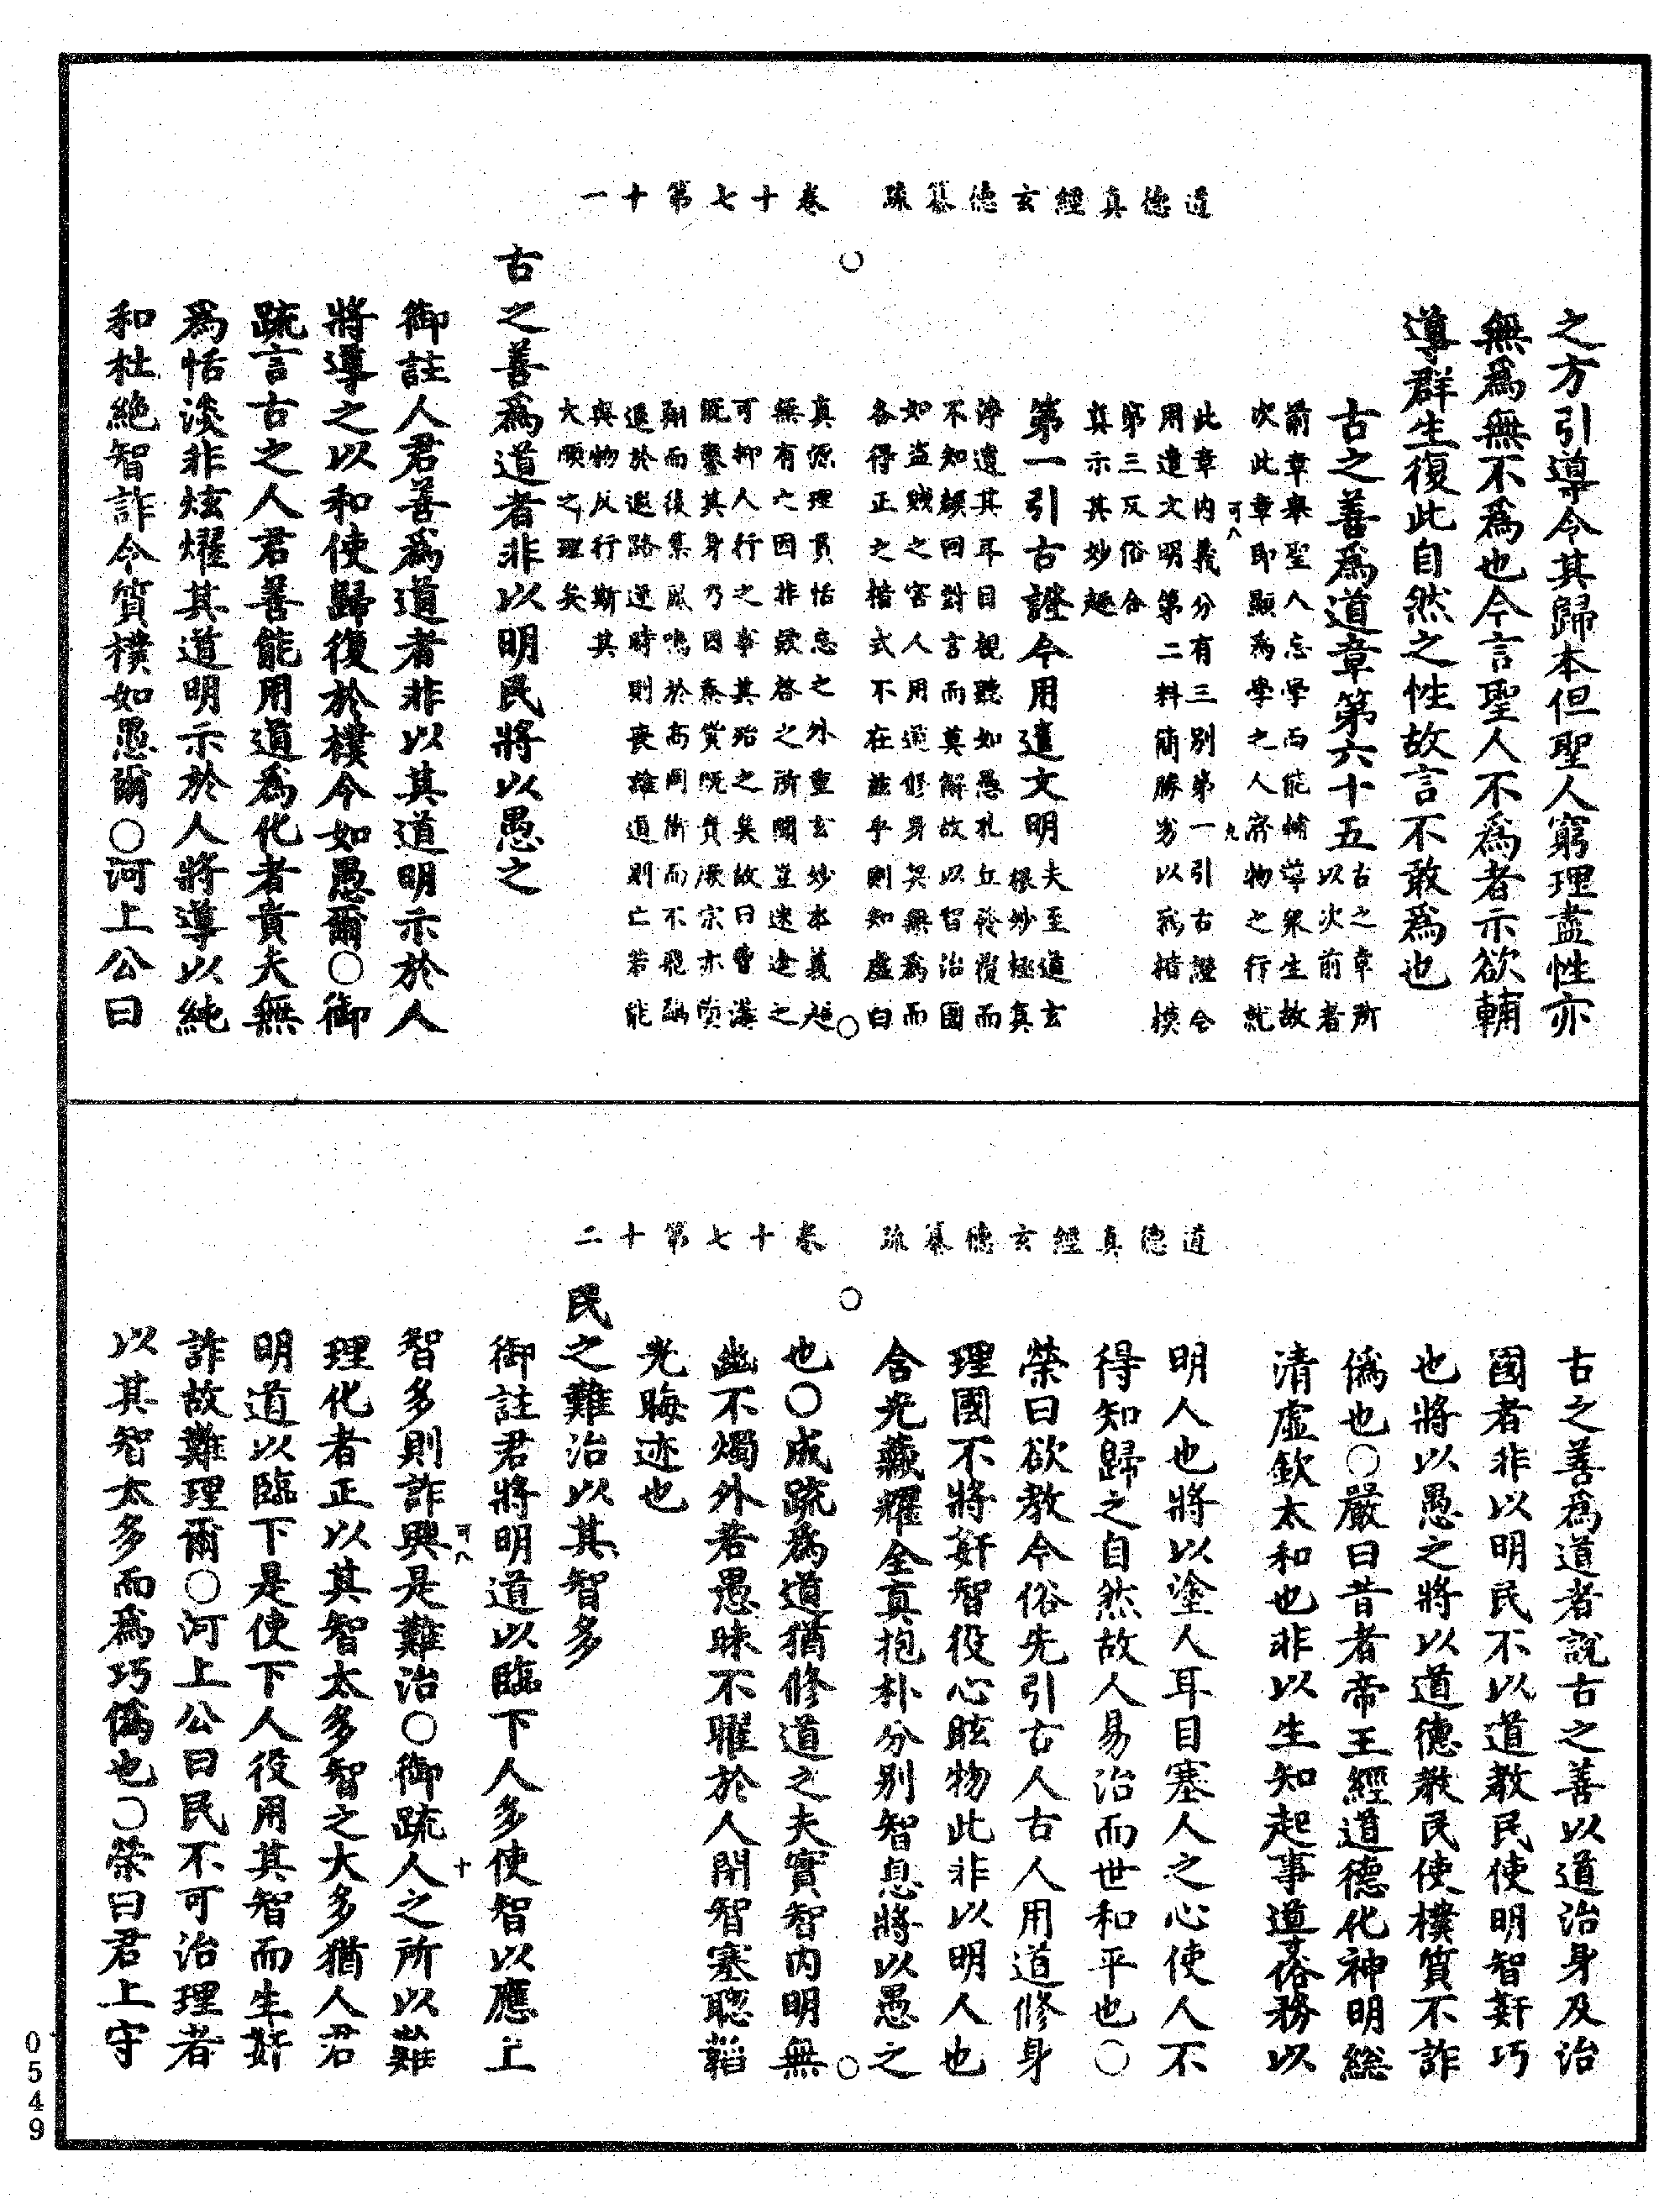 道德真經玄德纂疏　卷十七第十一
之方引導令其歸本但聖人窮理盡性亦
無為無不為也今言聖人不為者示欲輔
導群生復此自然之性故言不敢為也
古之善為道章第六十五古之章所
以次前者
前章舉聖人忘學而能輔導衆生故
次此章即顯為學之人齊物之行就
此章內義分有三別第一引古證今
用遣文明第二料簡勝劣以為楷模
第三反俗合
真示其妙趣
可八
九
第一引古證今用遣文明夫至道玄
根妙極真
淳遺其耳目視聽如愚孔丘發覆而
不知顏回對言而莫解故以智治國
如盜賊之害人用道修身契無為而
各得正之楷式不在茲乎則知虛白
真源理貫恬忘之外重玄妙本義超
無有之因非欲啓之所關豈迷途之
可抑人行之事其殆之矣故曰
既鑿其身乃因紊貨既貿厥宗亦
翔而後集鳳鳴於高岡而不飛
退於遐路逆時則喪離道則亡若能
與物反行斯其
大順之理矣
古之善為道者非以明民將以愚之
御註人君善為道者非以其道明示於人
將導之以和使歸復於樸令如愚爾○御
疏言古之人君善能用道為化者貴夫無
為恬淡非炫燿其道明示於人將導以純
和杜絕智詐令質樸如愚爾○河上公曰
道德真經玄德纂疏　卷十七第十二
古之善為道者說古之善以道治身及治
國者非以明民不以道教民使明智姧巧
也將以愚之將以道德教民使樸質不詐
偽也○嚴曰昔者帝王經道德化神明總
清虛欽太和也非以生知起事道俗務以
明人也將以塗人耳目塞人之心使人不
得知歸之自然故人易治而世和平也○
榮曰欲教今俗先引古人古人用道修身
理國不將姧智役心眩物此非以明人也
含光藏耀全真抱朴分別智息將以愚之
也○成疏為道猶修道之夫實智內明無
幽不燭外若愚昧不曜於人閉智塞聰韜
光晦迹也
民之難治以其智多
御註君將明道以臨下人多使智以應上
智多則詐興是難治○御疏人之所以難
可八
十
理化者正以其智太多智之大多猶人君
明道以臨下是使下人役用其智而生姧
詐故難理爾○河上公曰民不可治理者
以其智太多而為巧偽也○榮曰君上守
0549